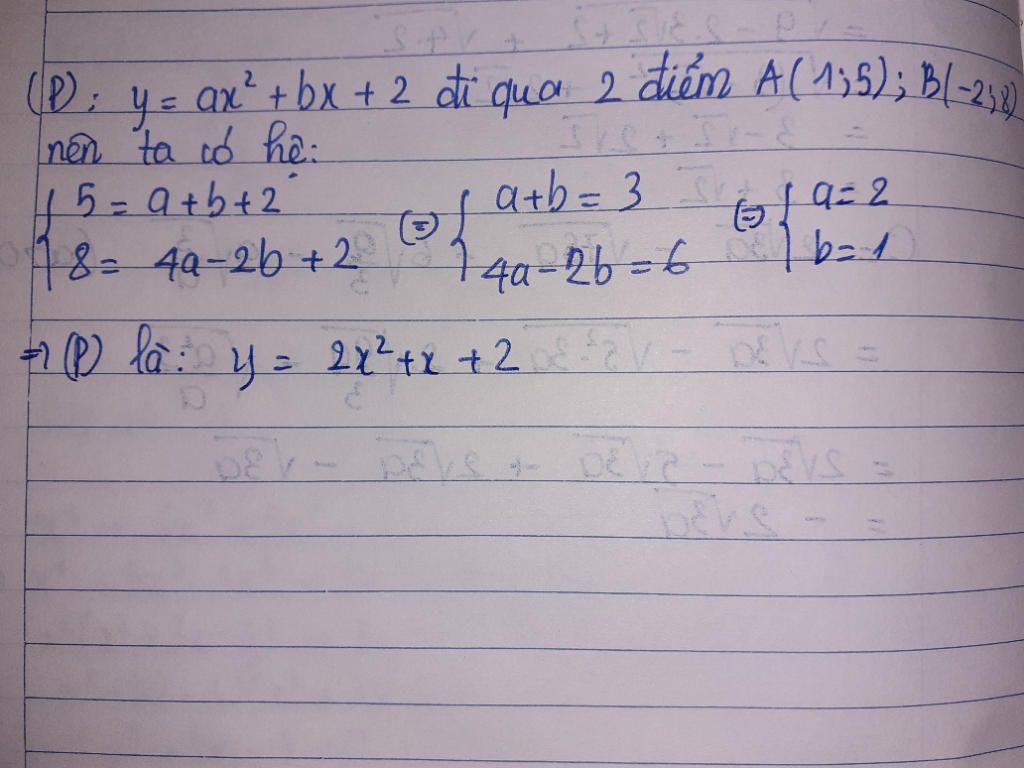 (P): y = ax² + bx + 2 đi qua 2 điểm A(1;5); B(-2;8)
nên ta có hệ:
{ 5 = a+b+2 (=) { a+b = 3 (=) { a=2
8 = 4a-2b+2 4a-2b=6 b=1
=> (P) là: y = 2x²+x+2